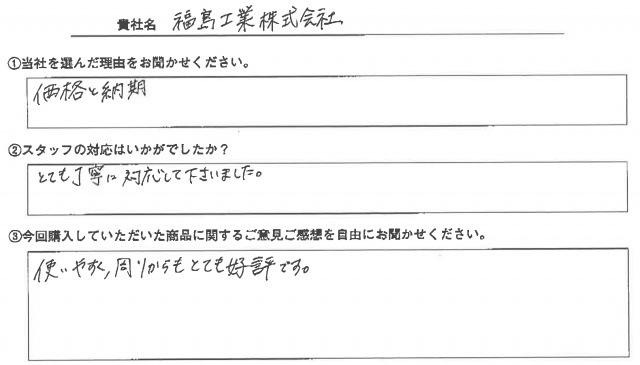 貴社名 福島工業株式会社
①当社を選んだ理由をお聞かせください。
価格と納期
②スタッフの対応はいかがでしたか？
とても丁寧に対応して下さいました。
③今回購入していただいた商品に関するご意見ご感想を自由にお聞かせください。
使いやすく、周りからもとても好評です。